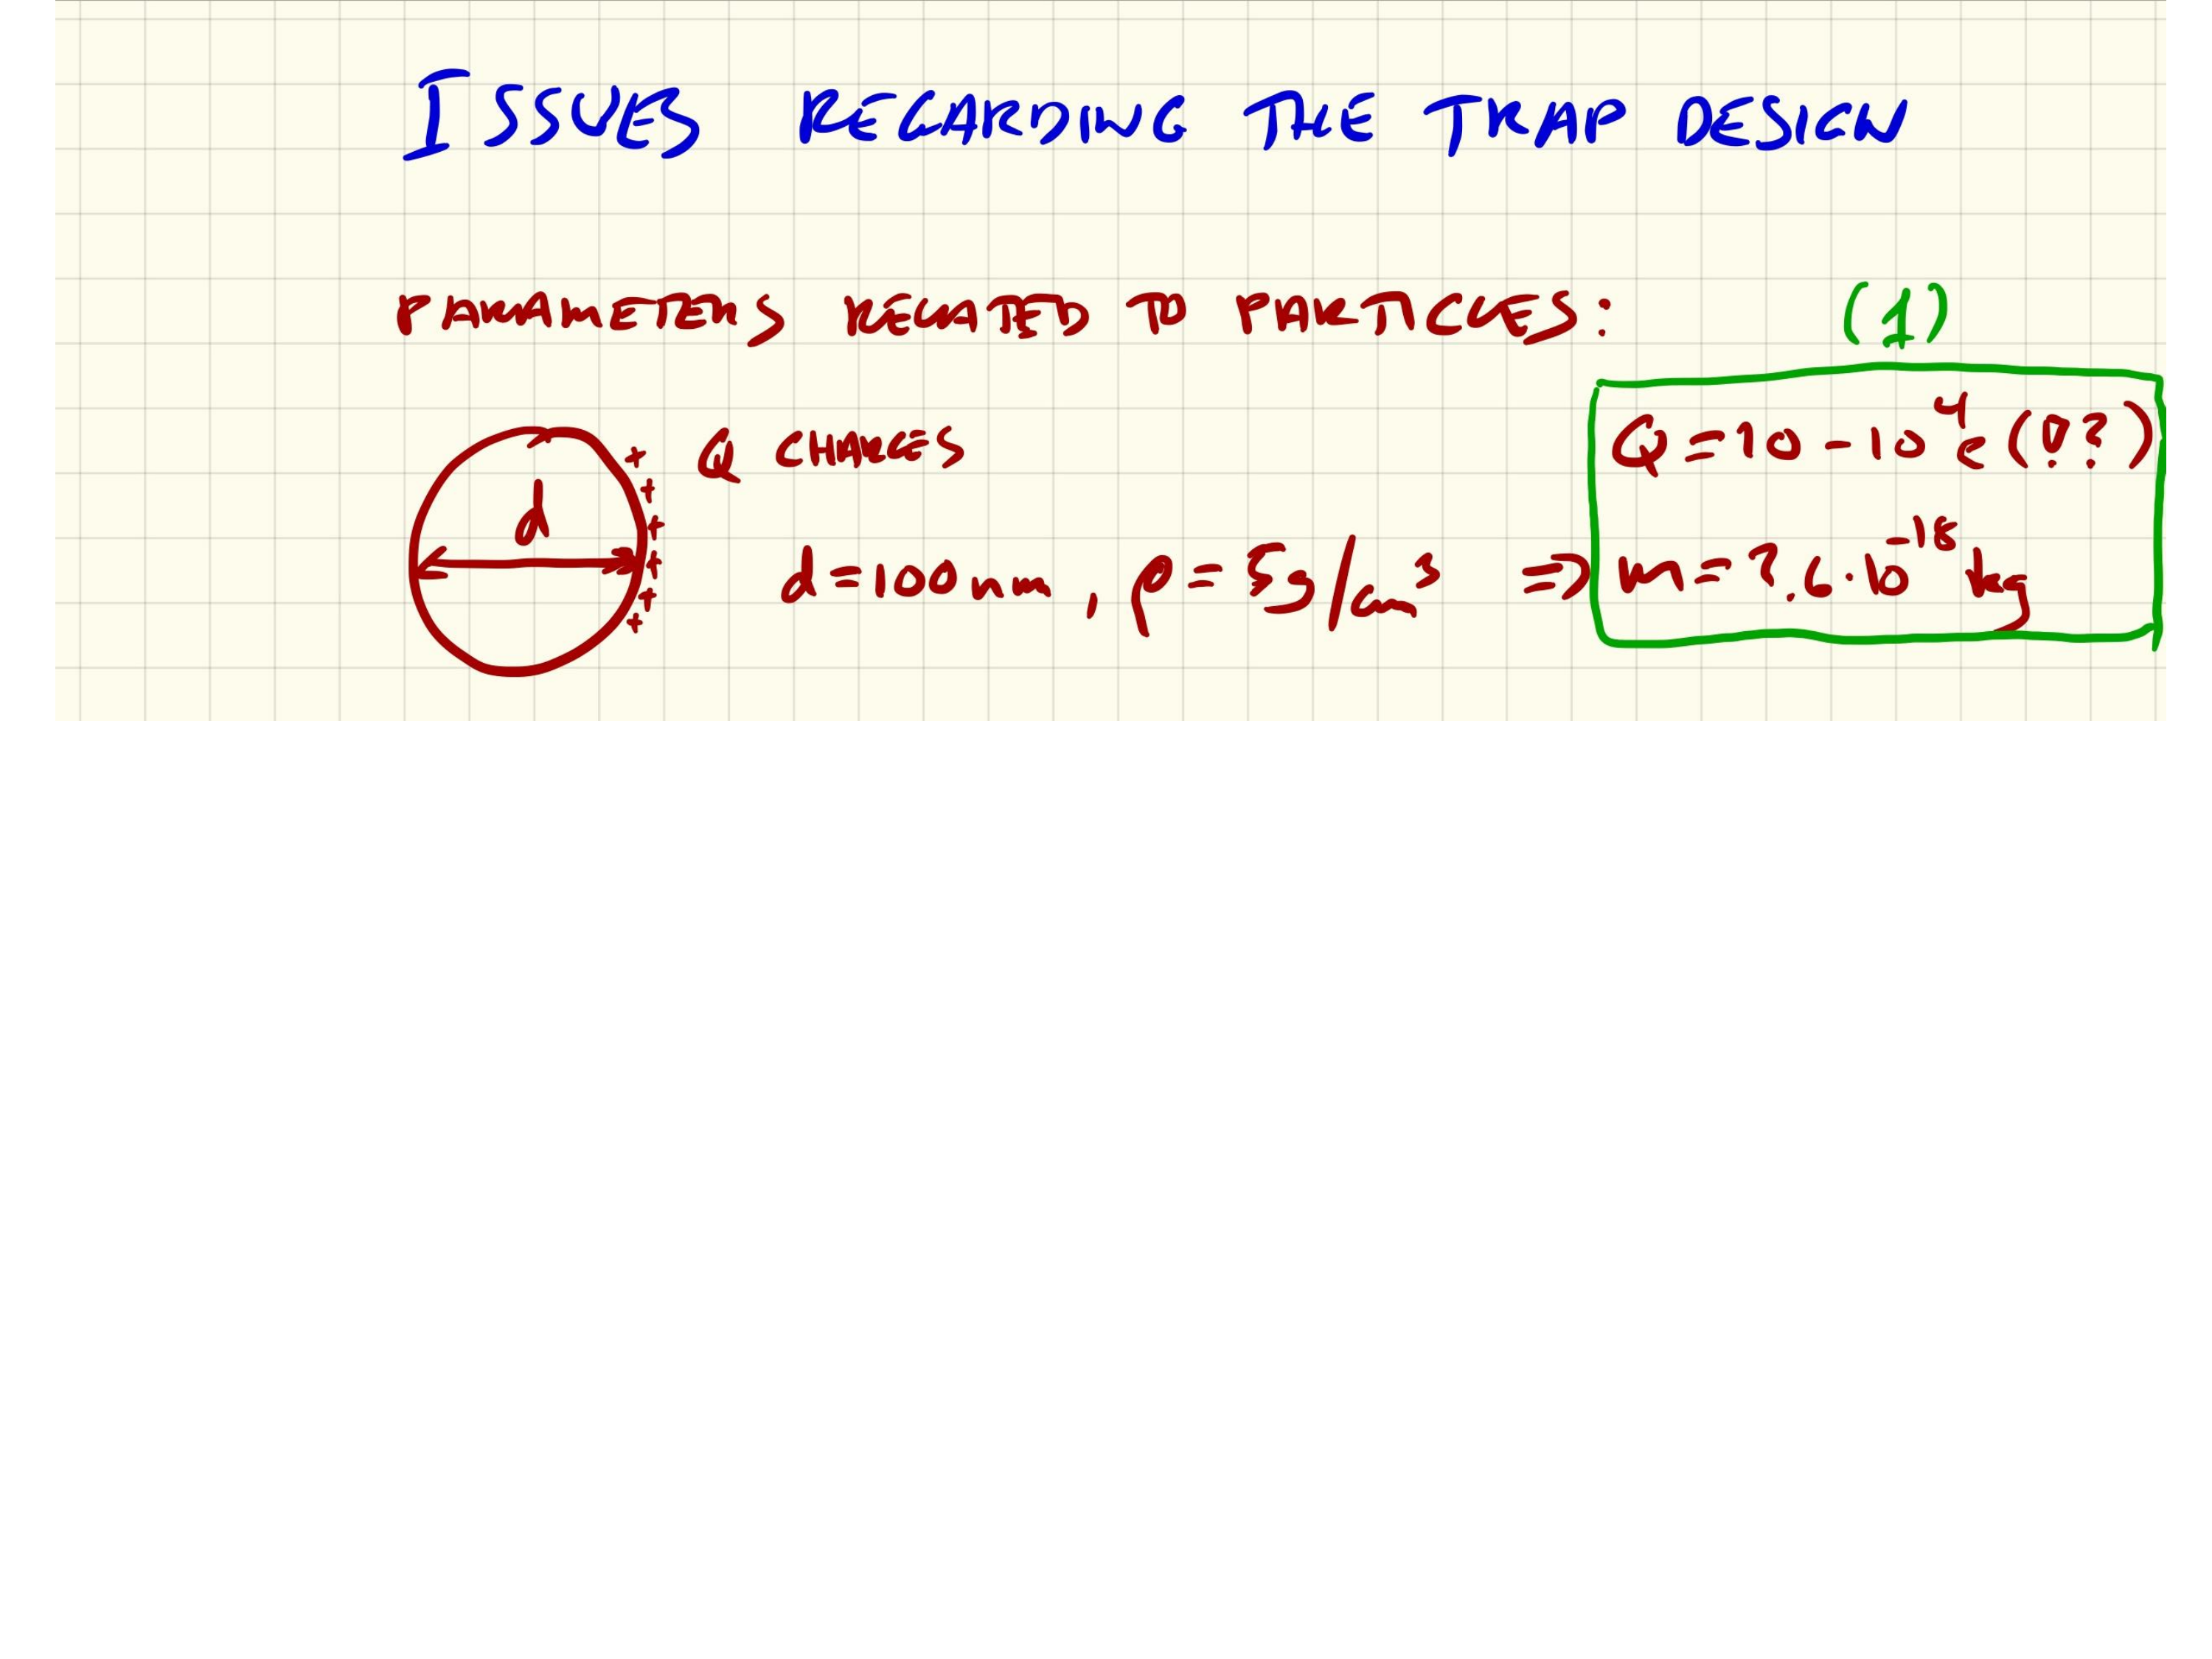 ISSUES REGARDING THE TRAP DESIGN
PARAMETERS RELATED TO PARTICLES: (1)
d
+ + + + + +
Q CHARGES
Q=10-10⁴e (!?)
d=100nm, ρ=5g/cm³ ⇒ m=2.6·10⁻¹⁸ kg